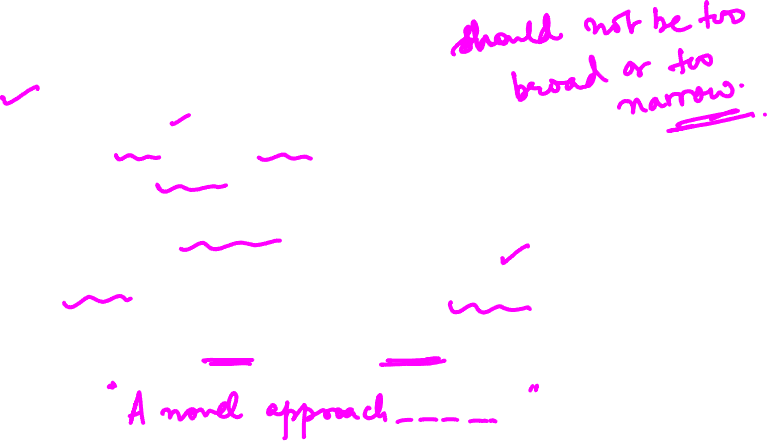 should not be too
broad or too
narrow.
"A novel approach -----